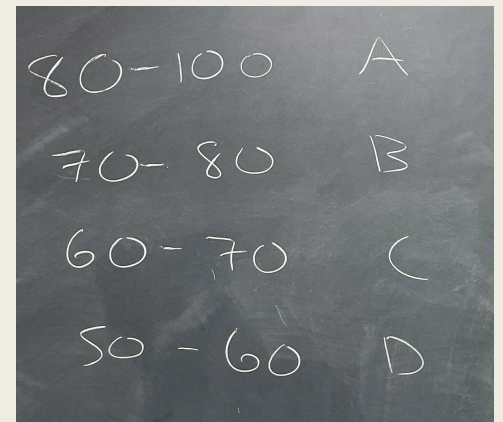 80-100 A
70-80 B
60-70 C
50-60 D